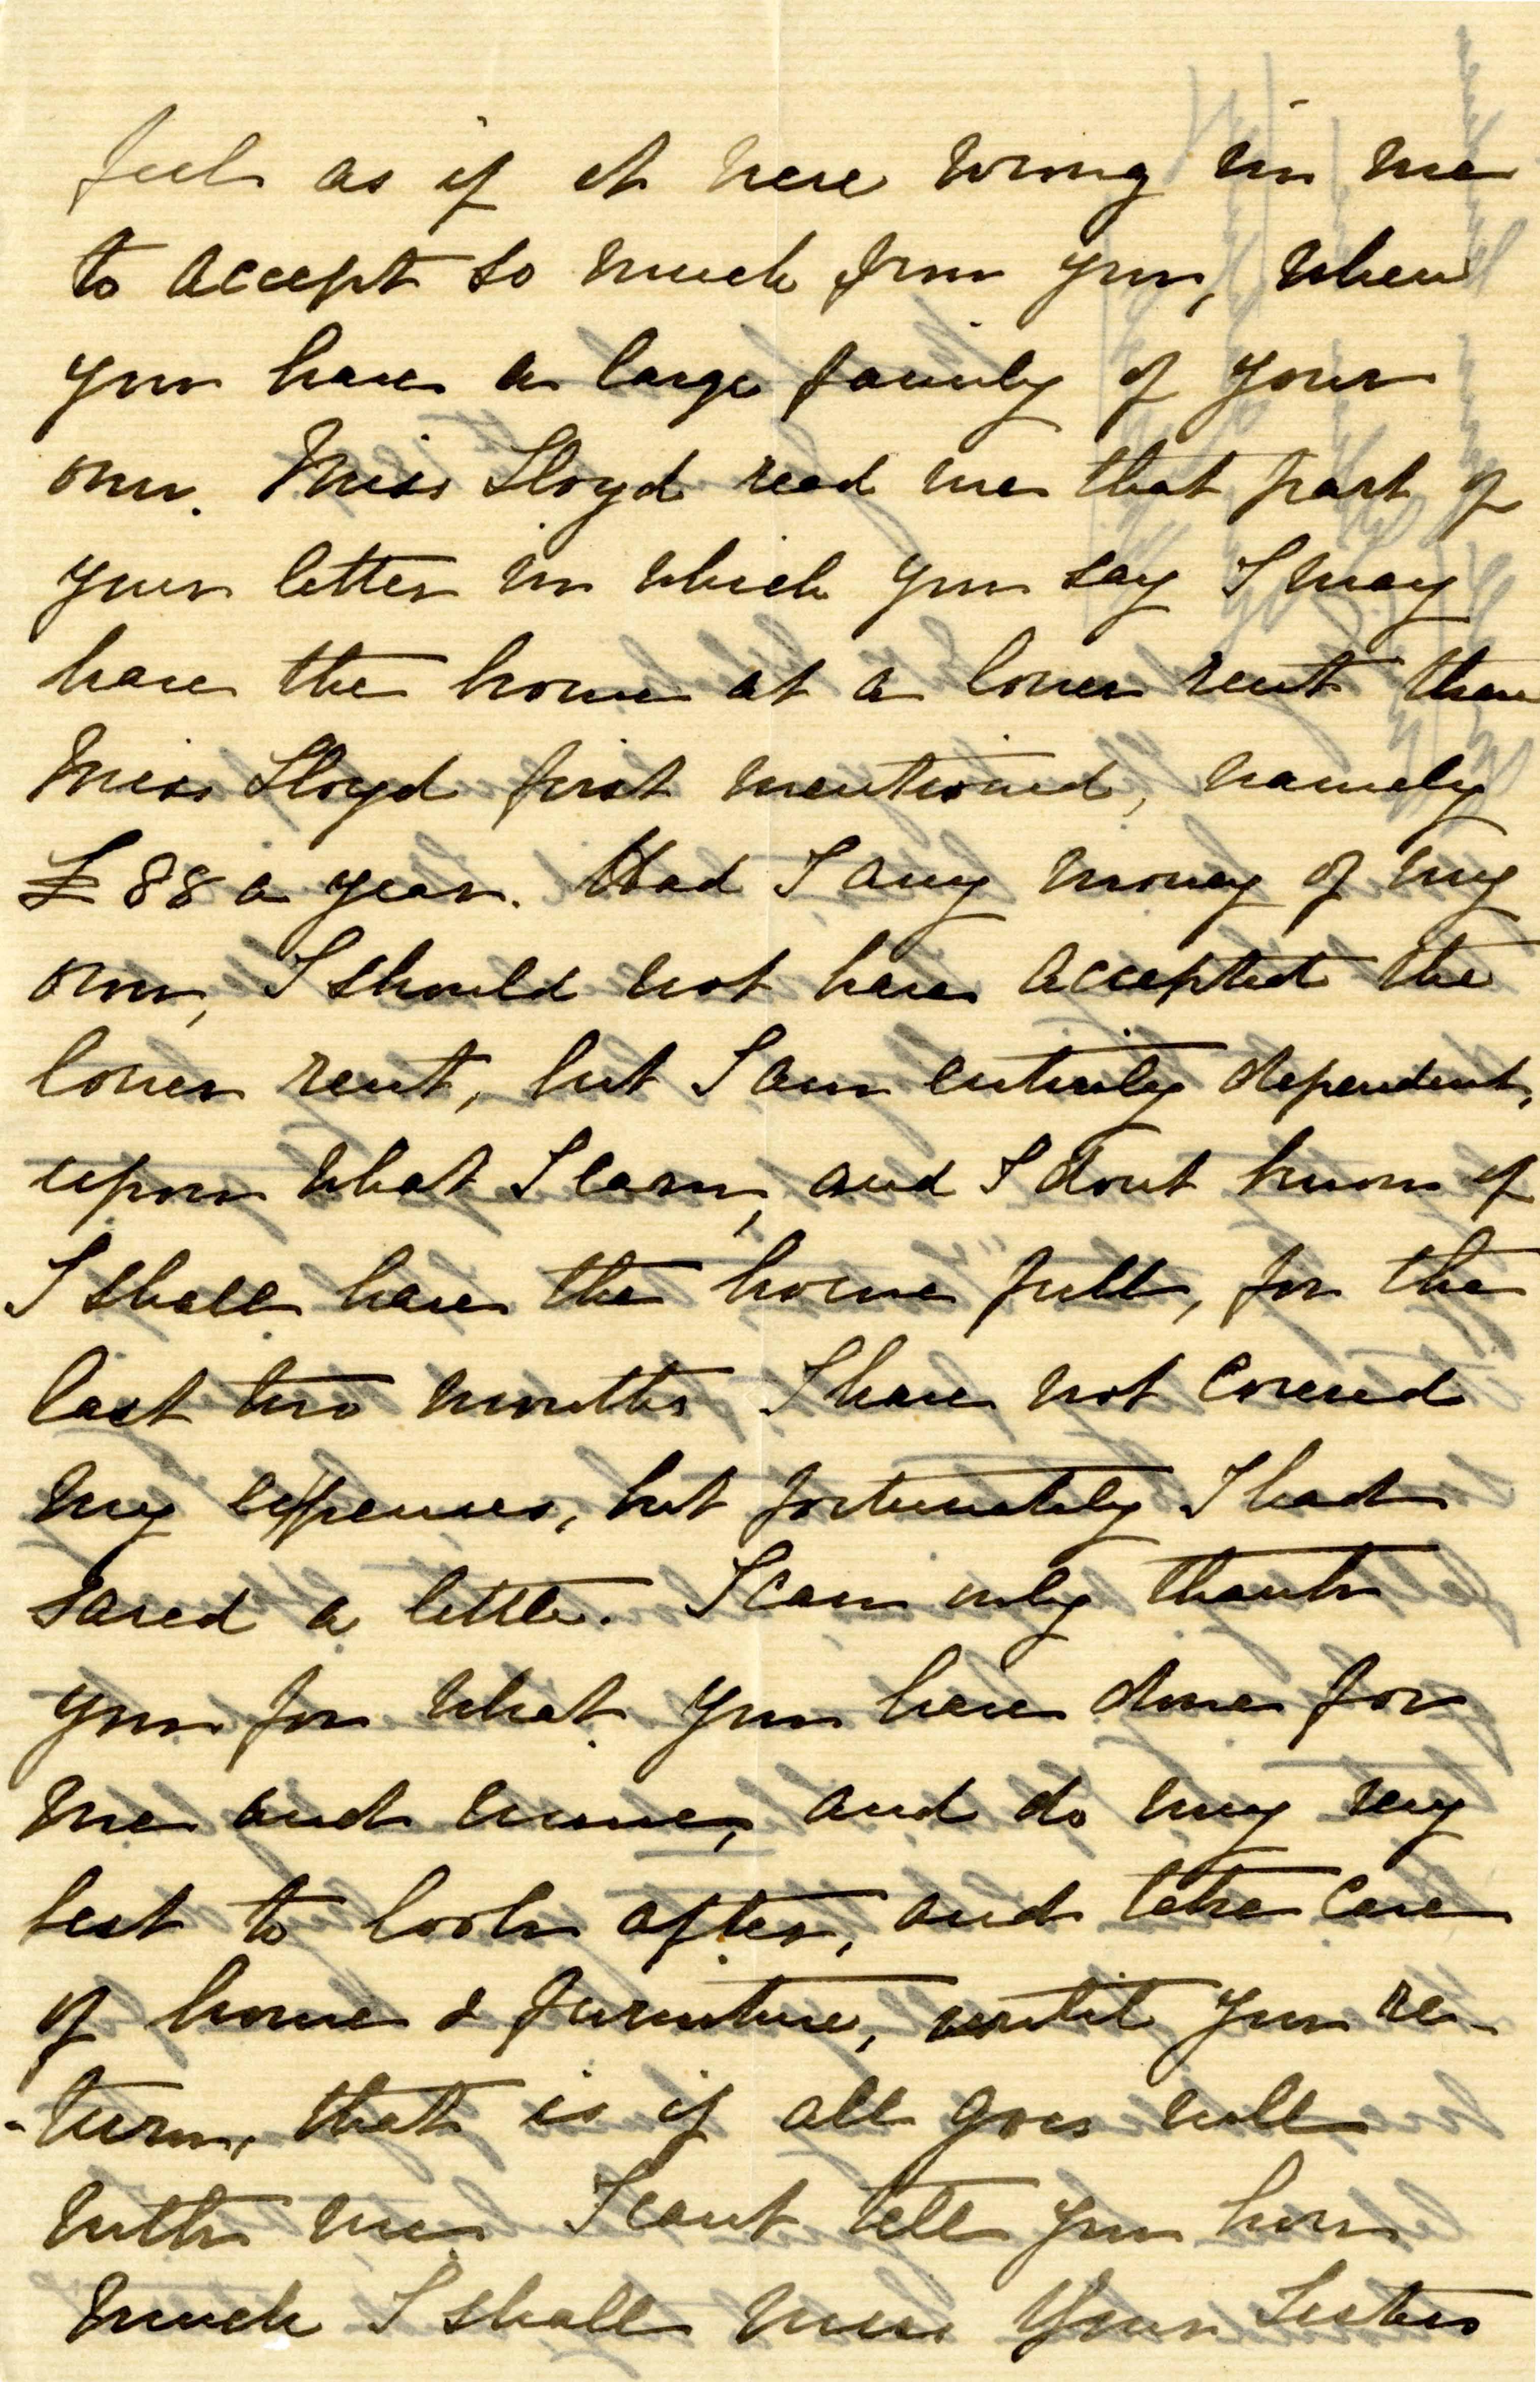 feel as if it were wrong in me
to accept so much from you, when
you have a large family of your
own. Miss Lloyd read me that part of
your letter in which you say I may
have the house at a lower rent than
Miss Lloyd first mentioned, namely
£88 a year. Had I any money of my
own, I should not have accepted the
lower rent, but I am entirely dependent,
upon what I earn, and I dont know if
I shall have the house full, for the
last two months I have not covered
my expenses, but fortunately I had
saved a little. I can only thank
you for what you have done for
me and mine, and do my very
best to look after, and take care
of house & furniture, until you re-
-turn, that is if all goes well
with me. I cant tell you how
much I shall miss your Sisters